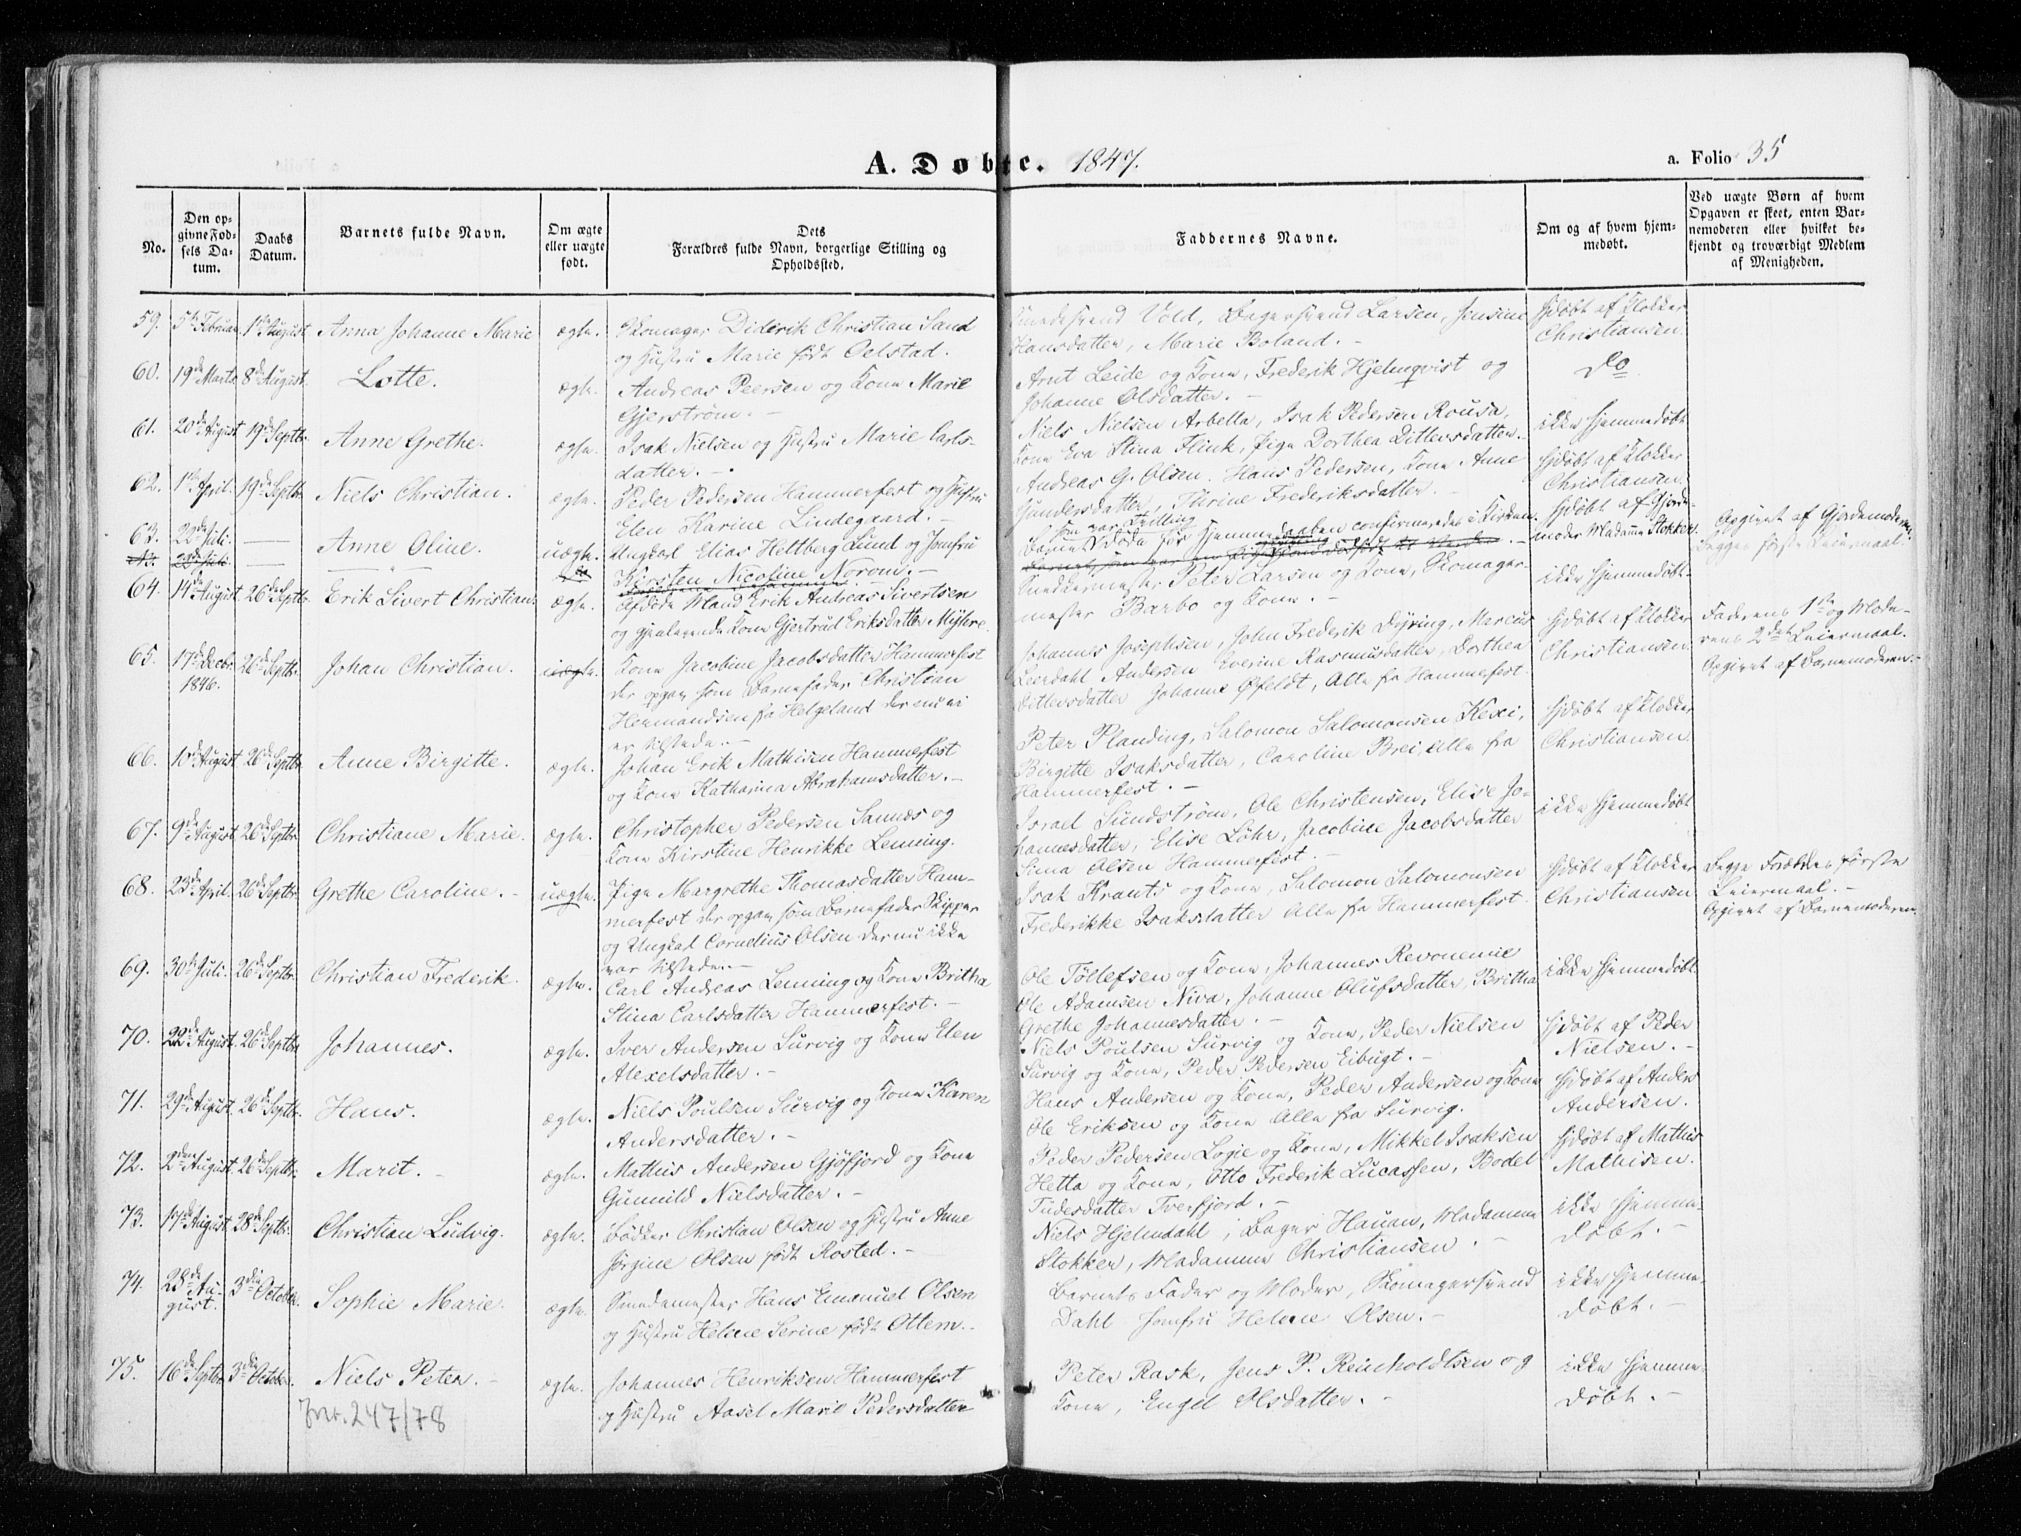 A. Døbte. 1847.
a. Folio 35
No.
Den opgivne Fødsels Datum.
Daabs Datum.
Barnets fulde Navn.
Om ægte eller uægte født.
Dets Forældres fulde Navn, borgerlige Stilling og Opholdssted.
Faddernes Navne.
Om og af hvem hjemmedøbt.
Ved uægte Børn af hvem Opgaven er skeet, enten Barnemoderen eller hvilket bekjendt og troværdigt Medlem af Menigheden.
59. 5te Februar 1ste August Anna Johanne Marie ægte.
Skomager Diderik Christian Sand
og Hustru Marie født Oelstad.
Smedesvend Vold, Bagersvend Larsen, Jensine
Hansdatter, Marie Boland. -
Hjdøbt af Klokker
Christiansen.
60. 19de Marts 8de August. Lotte. ægte.
Andreas Peersen og Kone Marie
Gjerström. -
Arnt Leide og Kone, Frederik Hjelmqvist og
Johanne Olsdatter. -
Do
61. 20de August 19de Septbr. Anne Grethe. ægte.
Isak Nielsen og Hustru Marie Carls-
datter. -
Niels Nielsen Arbella, Isak Pedersen Rousa,
Kone Eva Stina Flink, Pige Dorthea Dittersdatter.
ikke hjemmedøbt
62. 1ste April. 19de Septbr. Niels Christian. ægte.
Peder Pedersen Hammerfest og Hustru
Elen Karine Lindegaard. -
Andreas G. Olsen. Hans Pedersen, Kone Anne
Gundersdatter, Thrine Frederiksdatter. -
Hjdøbt af Klokker
Christiansen.
63. 22de Juli. Anne Oline. uægte.
Ungkarl Elias Heltberg Lund og Jomfru
Kirsten Nicoline Norom. -
som var Tvilling
Barnet døde før Hjemmedaaben confirmeredes i Kirken.
Hjdøbt af Gjorde-
moder Madame Stokker.
Opgivet af Gjordemoderen.
Begges første Leiermaal.
64. 14de August 26de Septbr. Erik Sivert Christian. ægte.
Afdøde Mand Erik Andreas Sivertsen
og gjenlevende Kone Gjertrud Eriksdatter Myhre.
Snedkermester Peter Larsen og Kone, Skomager-
mester Barbo og Kone. -
ikke hjemmedøbt.
65. 17de Decbr. 1846. 26de Septbr. Johan Christian. uægte.
Kone Jacobine Jacobsdatter Hammerfest
der opgav som Barnefader Christian
Hermandsen fra Helgeland der nu ei
er tilstede. -
Johannes Josephsen, John Frederik Dyring, Marcus
Leerdahl Andersen Everine Rasmusdatter, Dorthea
Dittersdatter Johanne Øfeldt, Alle fra Hammerfest.
Hjdøbt af Klokker
Christiansen.
Faderens 1ste og Mode-
rens 2det Leiermaal.
Opgivet af Barnemoderen. -
66. 10de August 26de Septbr. Anne Birgitte. ægte.
Johan Erik Mathisen Hammerfest
og Kone Katharina Abrahamsdatter. -
Peter Planding, Salomon Salomonsen Kexi,
Birgitte Isaksdatter, Caroline Brei, Alle fra
Hammerfest. -
Hjdøbt af Klokker
Christiansen.
67. 9de August. 26de Septbr. Christiane Marie. ægte.
Christopher Pedersen Sannæs og
Kone Kirstine Henrikke Lenning.
Israel Sundström, Ole Christensen, Elise Jo-
hannesdatter, Elise Löhr, Jacobine Jacobsdatter
Sima Olsen Hammerfest. -
ikke hjemmedøbt
68. 23de April. 26de Septbr. Grethe Caroline. - uægte.
Pige Margrethe Thomasdatter Ham-
merfest der opgav som Barnefader Skipper
og Ungkarl Cornelius Olsen der nu ikke
var tilstede. -
Isak Krants og Kone, Salomon Salomonsen
Frederikke Isaksdatter Alle fra Hammerfest.
Hjdøbt af Klokker
Christiansen
Begge Forældres første
Leiermaal. -
Opgivet af Barnemoderen.
69. 30te Juli. 26de Septbr. Christian Frederik. ægte.
Carl Andreas Lenning og Kone Britha
Stina Carlsdatter Hammerfest. -
Ole Töllefsen og Kone, Johannes Revonenie
Ole Adamsen Niva, Johanne Olufsdatter, Britha
Grethe Johannesdatter. -
ikke hjemmedøbt.
70. 22de August. 26de Septbr. Johannes. ægte.
Iver Andersen Survig og Kone Elen
Alexelsdatter. -
Niels Poulsen Survig og Kone, Peder Nielsen
Survig og Kone, Peder Pedersen Eibugt. -
Hjdøbt af Peder
Nielsen. -
71. 29de August. 26de Septbr. Hans. ægte.
Niels Poulsen Survig og Kone Karen
Andersdatter. -
Hans Andersen og Kone, Peder Andersen og Kone
Ole Eriksen og Kone Alle fra Survig.
Hjdøbt af Anders
Andersen.
72. 2den August. 26de Septbr. Marit. - ægte.
Mathis Andersen Gjøfjord og Kone
Gunnild Nielsdatter. -
Peder Pedersen Logie og Kone, Mikkel Isaksen
Hetta og Kone, Otto Frederik Lucassen, Bodel
Tudesdatter Tverfjord. -
Hjdøbt af Mathis
Mathisen.
73. 17de August. 28de Septbr. Christian Ludvig. ægte.
Bödker Christian Olsen og Hustru Anne
Jörgine Olsen født Rosted. -
Niels Hjelmdahl, Bager Hauan, Madamme
Stokker, Madamme Christiansen. -
ikke hjemme-
døbt. -
74. 28de August. 3die October. Sophie Marie. ægte.
Smedemester Hans Emanuel Olsen
og Hustru Helene Serine født Ottem. -
Barnets Fader og Moder, Skomagersvend
Dahl Jomfru Helene Olsen. -
ikke hjemme-
døbt. -
75. 16de Septbr. 3die October. Niels Peter. - ægte.
Johannes Henriksen Hammerfest
og Hustru Aasel Marie Pedersdatter
Peter Rask, Jens P. Reinholdtsen og
Kone, Engel Olsdatter. -
ikke hjemme-
døbt. -
Jnr. 247/78